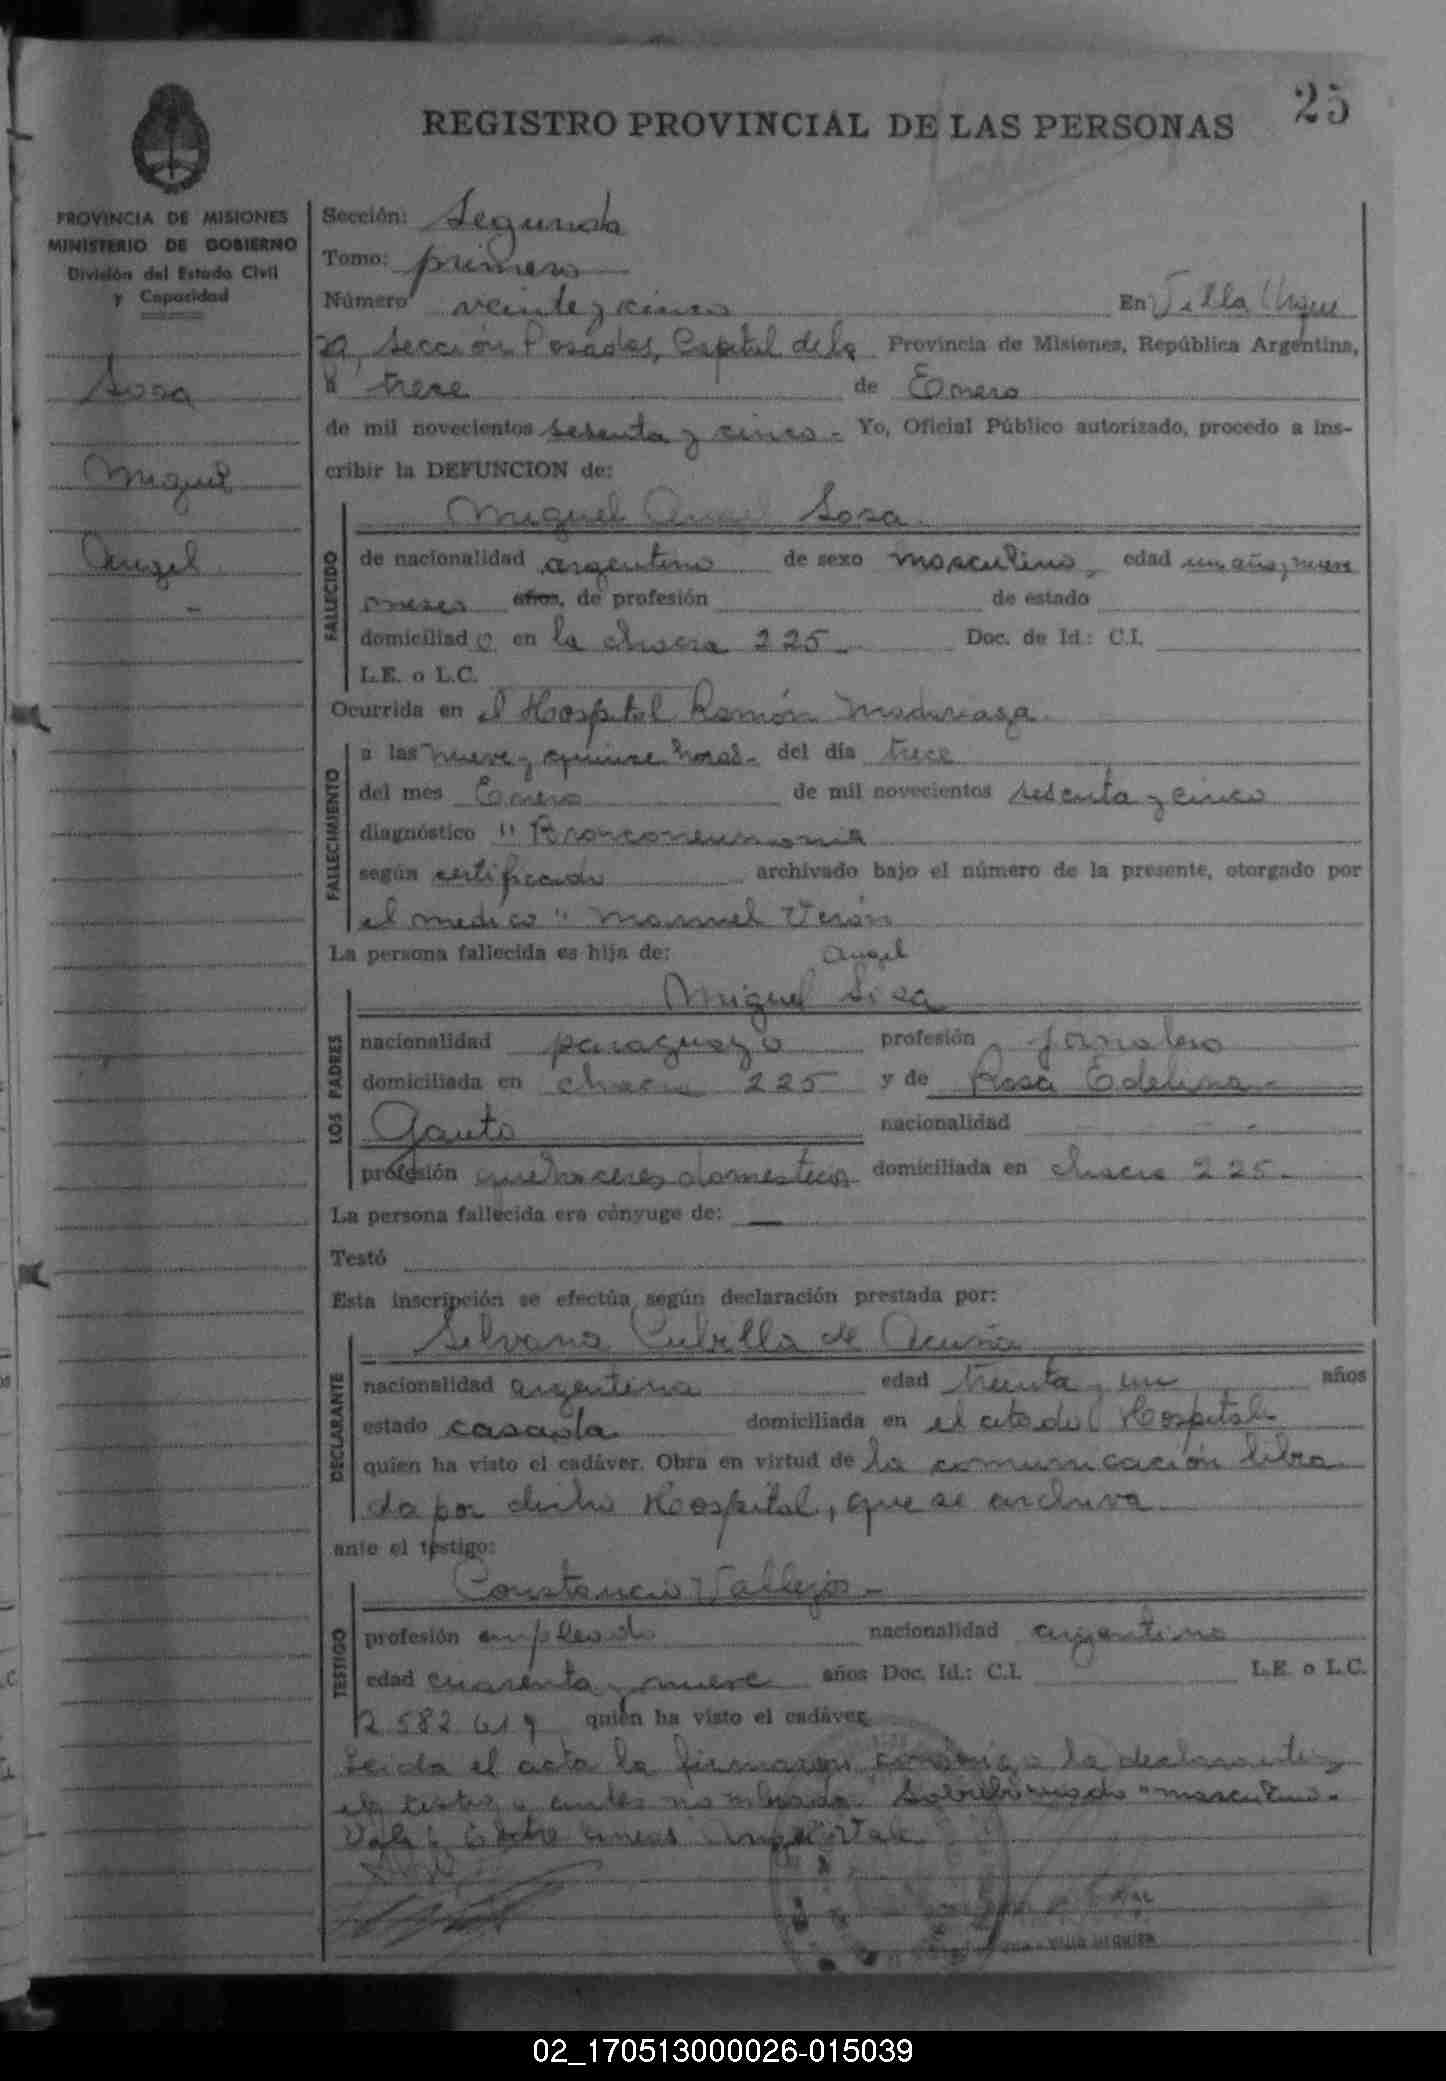 25
REGISTRO PROVINCIAL DE LAS PERSONAS
PROVINCIA DE MISIONES
MINISTERIO DE GOBIERNO
División del Estado Civil
y Capacidad
Sosa
Miguel
Angel
Sección: Segunda
Tomo: primero
Número veinte y cinco En Villa Urqui
za, Sección Posadas, Capital de la Provincia de Misiones, República Argentina,
a trece de Enero
de mil novecientos sesenta y cinco - Yo, Oficial Público autorizado, procedo a ins-
cribir la DEFUNCION de:
FALLECIDO
Miguel Angel Sosa
de nacionalidad argentino de sexo masculino, edad un año y nueve
meses años, de profesión de estado
domiciliado en la chacra 225 Doc. de Id.: C.I.
L.E. o L.C.
Ocurrida en el Hospital Ramón Madariaga
FALLECIMIENTO
a las nueve y quince horas - del día trece
del mes Enero de mil novecientos sesenta y cinco
diagnóstico "Bronconeumonia
según certificado archivado bajo el número de la presente, otorgado por
el medico" Manuel Verón
La persona fallecida es hija de:
Angel
LOS PADRES
Miguel Sosa
nacionalidad paraguayo profesión jornalero
domiciliada en chacra 225 y de Rosa Edelina -
Gauto nacionalidad -
profesión quehaceres domesticos domiciliada en chacra 225 -
La persona fallecida era cónyuge de: —
Testó
Esta inscripción se efectúa según declaración prestada por:
DECLARANTE
Silvana Cubilla de Acuña
nacionalidad argentina edad treinta y un años
estado casada domiciliada en el citado Hospital -
quien ha visto el cadáver. Obra en virtud de la comunicación libra
da por dicho Hospital, que se archiva
ante el testigo:
TESTIGO
Constancio Vallejos -
profesión empleado nacionalidad argentino
edad cuarenta y nueve años Doc. Id.: C.I. L.E. o L.C.
2582619 quién ha visto el cadáver
Leida el acta la firmaron conmigo la declarante y
el testigo antes nombrado. Sobreborrado "masculino -
Vale; Entre lineas Angel Vale
VILLA URQUIZA
02_170513000026-015039